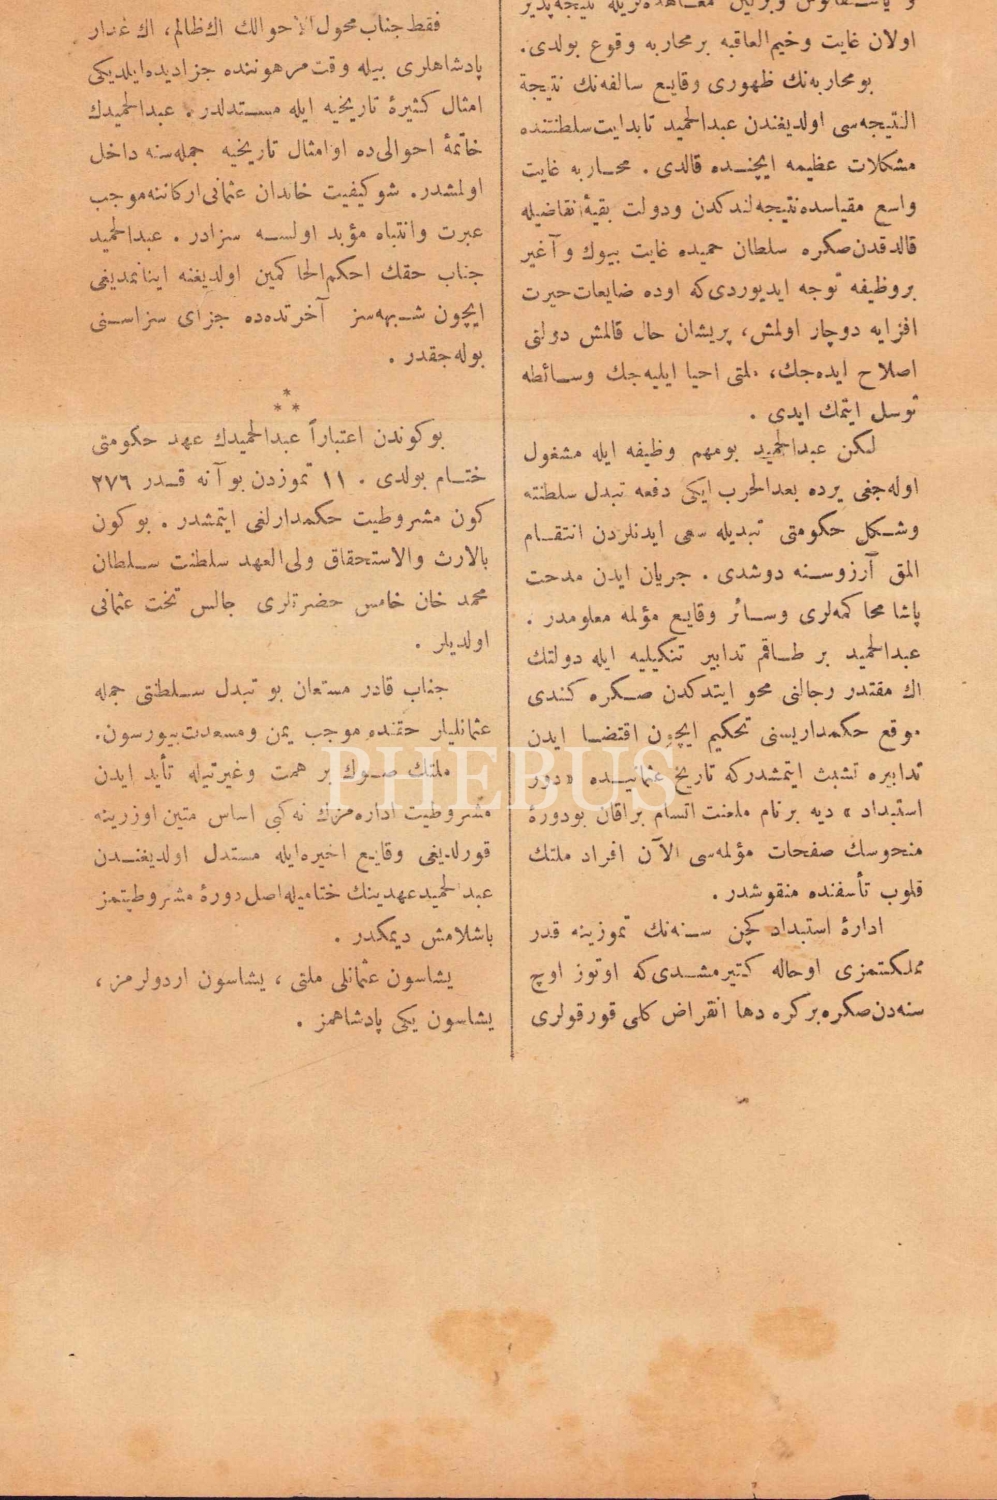 و یاستفانوس وبرلین معاهده لریله نتیجه پذیر
اولان غایت وخیم العاقبه بر محاربه وقوع بولدی.
بو محاربه نك ظهوری وقایع سالفه نك نتیجة
النتیجه سی اولدیغندن عبدالحمید تا بدایت سلطنتنده
مشکلات عظیمه ایچنده قالدی. محاربه غایت
واسع مقیاسده نتیجه لندکدن ودولت بقیۀ انقاضیله
قالدقدن صکره سلطان حمیده غایت بیوك و آغیر
بر وظیفه توجه ایدیوردی که اوده ضایعات حیرت
افزایه دوچار اولمش، پریشان حال قالمش دولتی
اصلاح ایده جك، ملتی احیا ایلیه جك وسائطه
توسل ایتمك ایدی.
لکن عبدالحمید بو مهم وظیفه ایله مشغول
اوله جغی یرده بعدالحرب ایکی دفعه تبدل سلطنته
وشکل حکومتی تبدیله سعی ایدنلردن انتقام
المق آرزوسنه دوشدی. جریان ایدن مدحت
پاشا محاکمه لری وسائر وقایع مؤلمه معلومدر.
عبدالحمید بر طاقم تدابیر تنکیلیه ایله دولتك
اك مقتدر رجالنی محو ایتدکدن صکره کندی
موقع حکمداریسنی تحکیم ایچون اقتضا ایدن
تدابیره تشبث ایتمشدر که تاریخ عثمانیده «دور
استبداد» دیه بر نام ملعنت اتسام براقان بودورۀ
منحوسك صفحات مؤلمه سی الآن افراد ملتك
قلوب تأسفنده منقوشدر.
ادارۀ استبداد کچن سنه نك تموزینه قدر
مملکتمزی اوحاله کتیرمشدی که اوتوز اوچ
سنه دن صکره بر کره دها انقراض کلی قورقولری
فقط جناب محول الاحوالك اك ظالم، اك غدار
پادشاهلری بیله وقت مرهوننده جزادیده ایلدیکی
امثال کثیرۀ تاریخیه ایله مستدلدر. عبدالحمیدك
خاتمۀ احوالی ده او امثال تاریخیه جمله سنه داخل
اولمشدر. شو کیفیت خاندان عثمانی ارکاننه موجب
عبرت وانتباه مؤبد اولسه سزادر. عبدالحمید
جناب حقك احکم الحاکمین اولدیغنه اینانمدیغی
ایچون شبهه سز آخرتده ده جزای سزاسنی
بوله جقدر.
***
بو کوندن اعتباراً عبدالحمیدك عهد حکومتی
ختام بولدی. ١١ تموزدن بو آنه قدر ٢٧٦
کون مشروطیت حکمدارلغی ایتمشدر. بو کون
بالارث والاستحقاق ولی العهد سلطنت سلطان
محمد خان خامس حضرتلری جالس تخت عثمانی
اولدیلر.
جناب قادر مستعان بو تبدل سلطنتی جمله
عثمانلیلر حقنده موجب یمن ومسعدت بیورسون.
ملتك صوك بر همت وغیرتیله تأید ایدن
مشروطیت اداره مزك نه کبی اساس متین اوزرینه
قورلدیغی وقایع اخیره ایله مستدل اولدیغندن
عبدالحمید عهدینك ختامیله اصل دورۀ مشروطیتمز
باشلامش دیمکدر.
یشاسون عثمانلی ملتی، یشاسون اردولرمز،
یشاسون یکی پادشاهمز.
PHEBUS